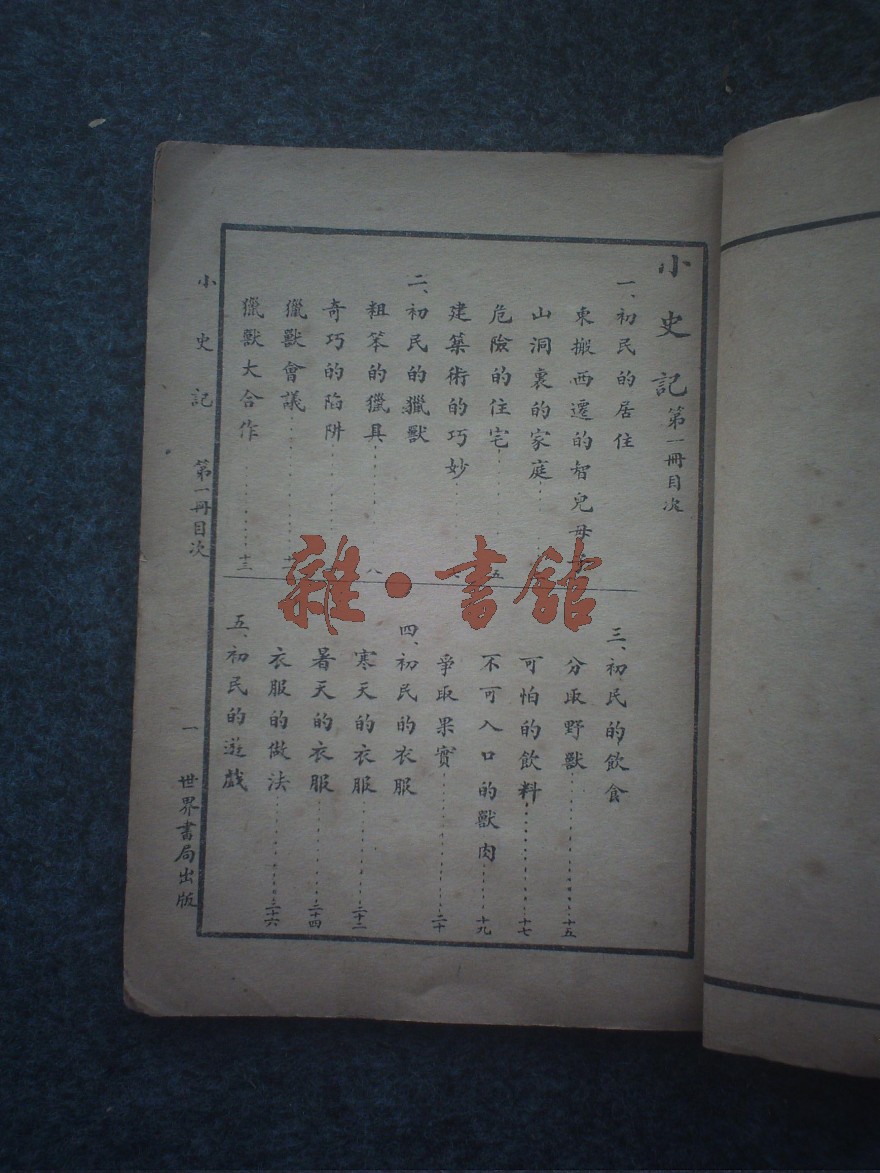 小史記 第一冊目次
一、初民的居住
東搬西遷的智兒母
山洞裏的家庭
危險的住宅……五
建築術的巧妙
二、初民的獵獸
粗笨的獵具……八
奇巧的陷阱
獵獸會議
獵獸大合作……十三
三、初民的飲食
分取野獸……十五
可怕的飲料……十七
不可入口的獸肉……十九
爭取果實……二十
四、初民的衣服
寒天的衣服……二十二
暑天的衣服……二十四
衣服的做法……二十六
五、初民的遊戲
小史記 第一冊目次 一 世界書局出版
雜·書館